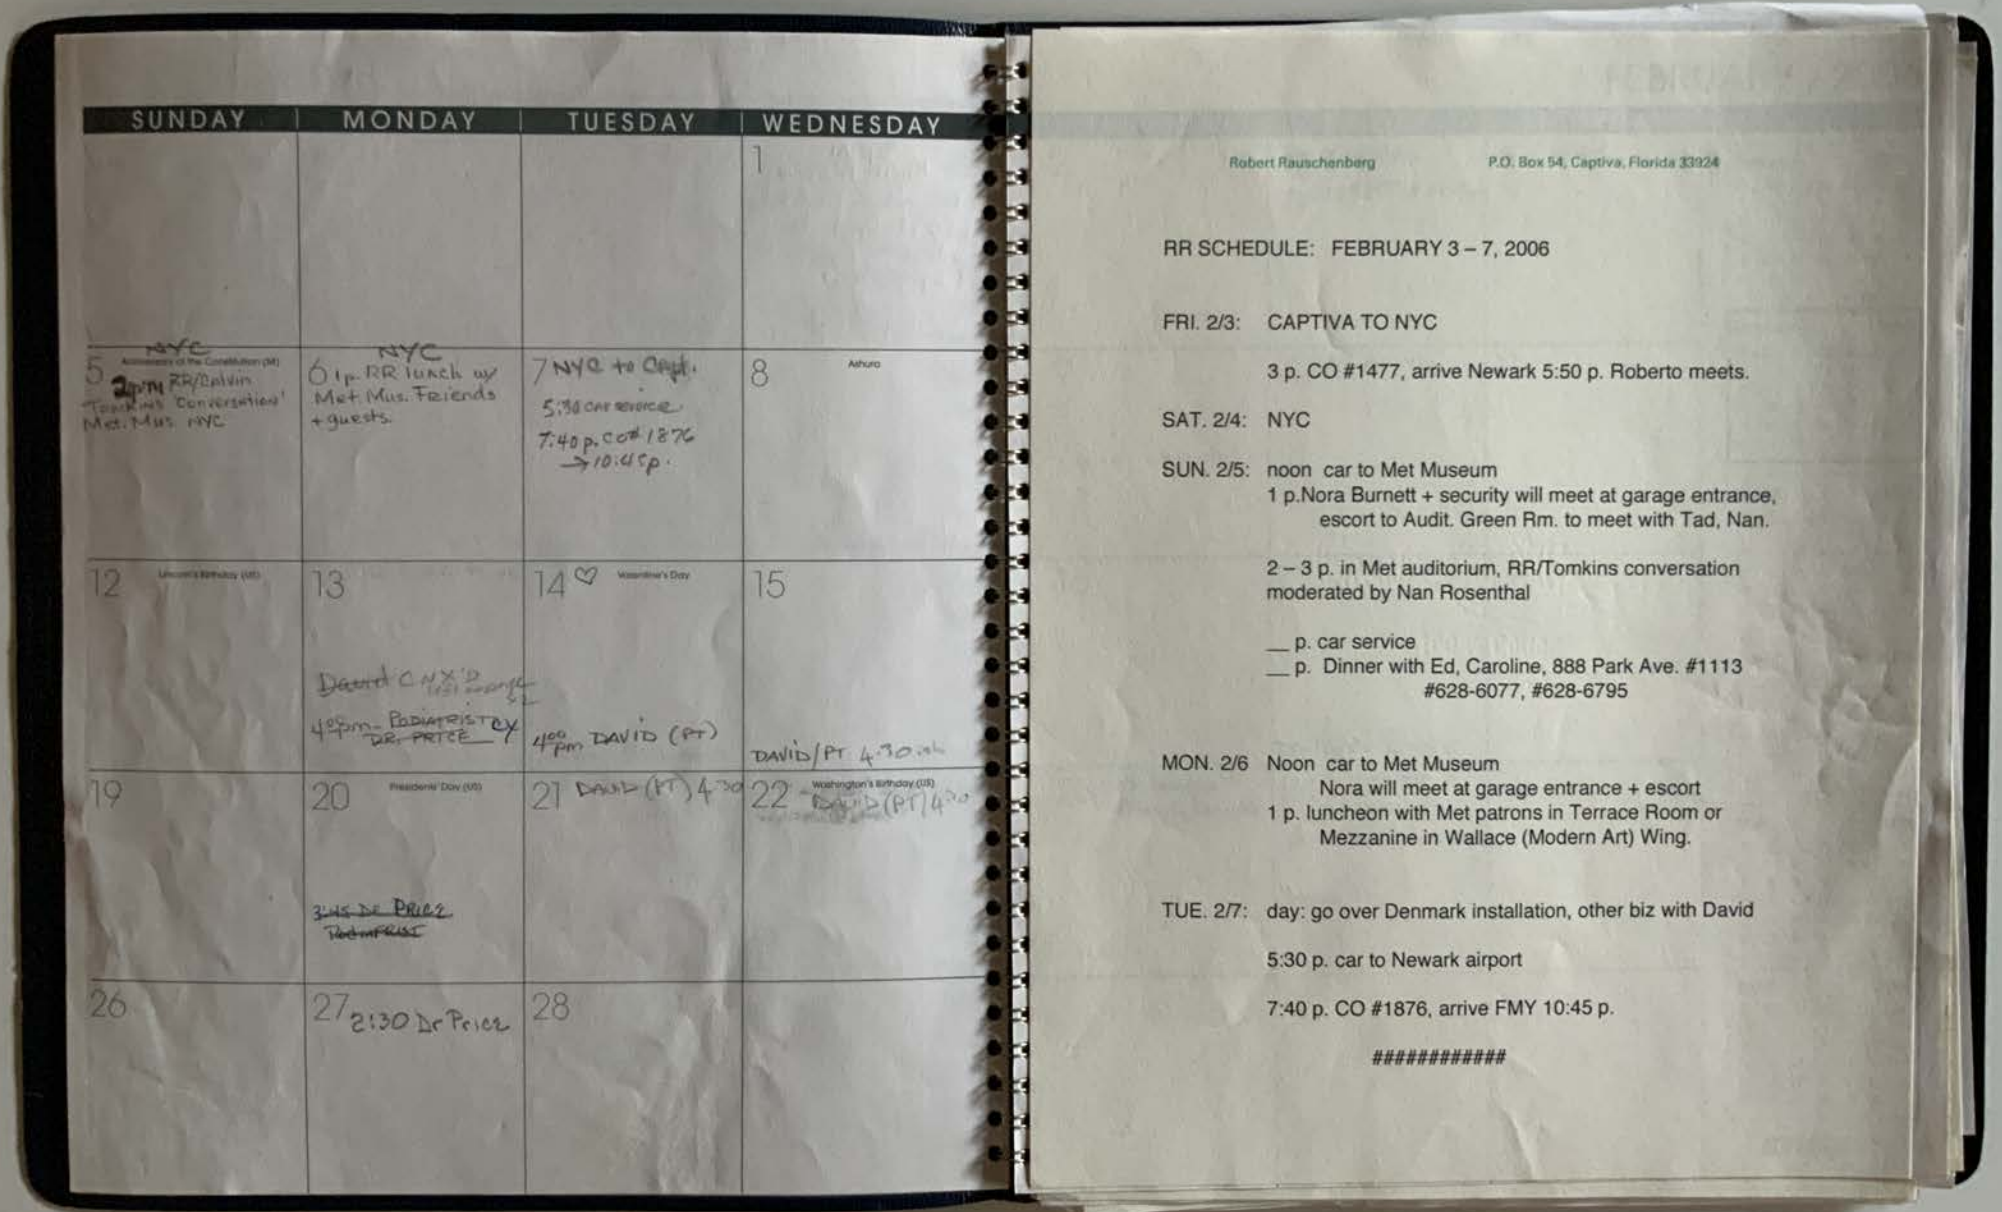 SUNDAY MONDAY TUESDAY WEDNESDAY
1
NYC
5 Anniversary of the Constitution (M)
2pm RR/Calvin
Tomkins 'Conversation'
Met. Mus NYC
NYC
6 1p. RR lunch w/
Met. Mus. Friends
+ guests.
7 NYC to Capt.
5:30 car service
7:40 p. CO# 1876
→ 10:45p.
8 Ashura
12 Lincoln's Birthday (US)
13
David CNX'D
4:00pm - PODIATRIST
DR. PRICE
14 ♡ Valentine's Day
4:00 pm DAVID (PT)
15
DAVID/PT 4:30
19
20 Presidents' Day (US)
3:45 Dr PRICE
PODIATRIST
21 DAVID (PT) 4:30
22 Washington's Birthday (US)
DAVID (PT) 4:30
26
27 2:30 Dr Price
28
Robert Rauschenberg P.O. Box 54, Captiva, Florida 33924
RR SCHEDULE: FEBRUARY 3 – 7, 2006
FRI. 2/3: CAPTIVA TO NYC
3 p. CO #1477, arrive Newark 5:50 p. Roberto meets.
SAT. 2/4: NYC
SUN. 2/5: noon car to Met Museum
1 p.Nora Burnett + security will meet at garage entrance,
escort to Audit. Green Rm. to meet with Tad, Nan.
2 – 3 p. in Met auditorium, RR/Tomkins conversation
moderated by Nan Rosenthal
__ p. car service
__ p. Dinner with Ed, Caroline, 888 Park Ave. #1113
#628-6077, #628-6795
MON. 2/6 Noon car to Met Museum
Nora will meet at garage entrance + escort
1 p. luncheon with Met patrons in Terrace Room or
Mezzanine in Wallace (Modern Art) Wing.
TUE. 2/7: day: go over Denmark installation, other biz with David
5:30 p. car to Newark airport
7:40 p. CO #1876, arrive FMY 10:45 p.
############